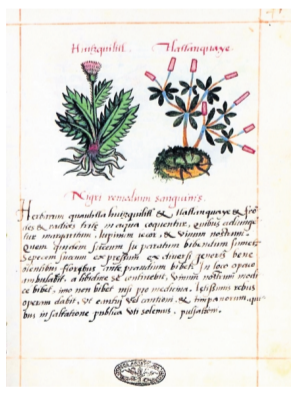 Huitzquilitl. Tlatlanquaye.
Nigri remedium sanguinis.
Herbarum quauhtla huitzquilitl & tlatlanquaye & fron
des & radices tritæ in aqua coquentur, quibus adiunges
margaritum, lupinum iecur, & vinum nostrum.
Quem quidem succum sic paratum bibendum sumet.
Seorsum succum expressum ex diversi generis bene
olentibus floribus ante prandium bibet. In loco opaco
ambulabit, a libidine se continebit, vinum nostrum modi
ce bibet, imo non bibet nisi pro medicina. Lætissimis rebus
operam dabit, ut cantui vel cantioni, & timpanorum, qui
bus in saltatione publica uti solemus, pulsationi.